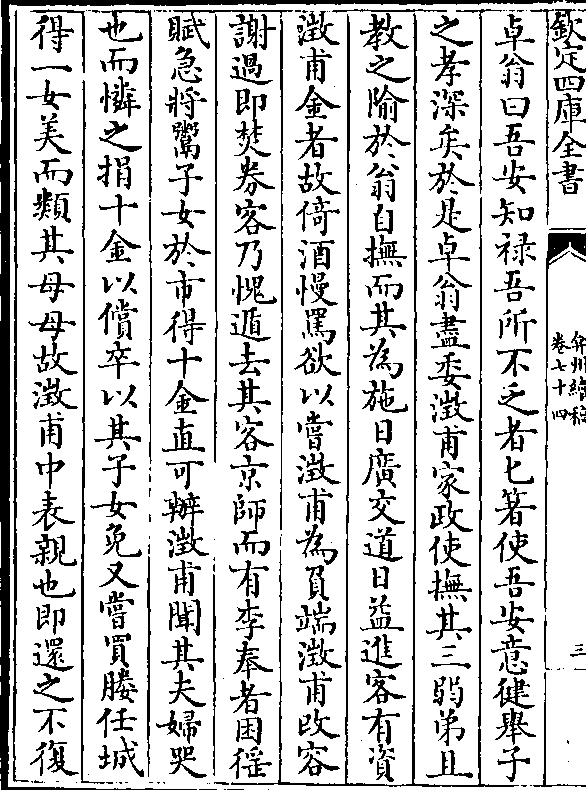 欽定四庫全書
弇州續稿
卷七十四
三
卓翁曰吾安知禄吾所不乏者匕箸使吾安意健舉子
之孝深矣於是卓翁盡委澂甫家政使撫其三弱弟且
教之隃於翁自撫而其為施日廣交道日益進客有資
澂甫金者故倚酒慢罵欲以嘗澂甫為負端澂甫改容
謝過即焚券客乃愧遁去其客京師而有李奉者困徭
賦急將鬻子女於市得十金直可辦澂甫聞其夫婦哭
也而憐之捐十金以償卒以其子女免又嘗買媵任城
得一女美而類其母母故澂甫中表親也即還之不復